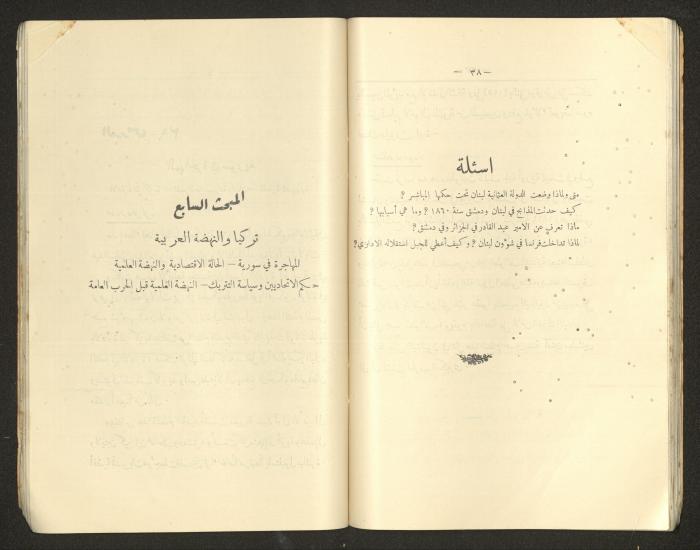 — ٣٨ —
اسئلة
متى ولماذا وضعت الدولة العثمانية لبنان تحت حكمها المباشر ؟
كيف حدثت المذابح في لبنان ودمشق سنة ١٨٦٠ ؟ وما هي أسبابها ؟
ماذا تعرف عن الامير عبد القادر في الجزائر وفي دمشق ؟
لماذا تداخلت فرنسا في شؤون لبنان ؟ وكيف أعطي للجبل استقلاله الاداري ؟
المبحث السابع
تركيا والنهضة العربية
المهاجرة في سورية – الحالة الاقتصادية والنهضة العلمية
حكم الاتحاديين وسياسة التتريك – النهضة العلمية قبل الحرب العامة